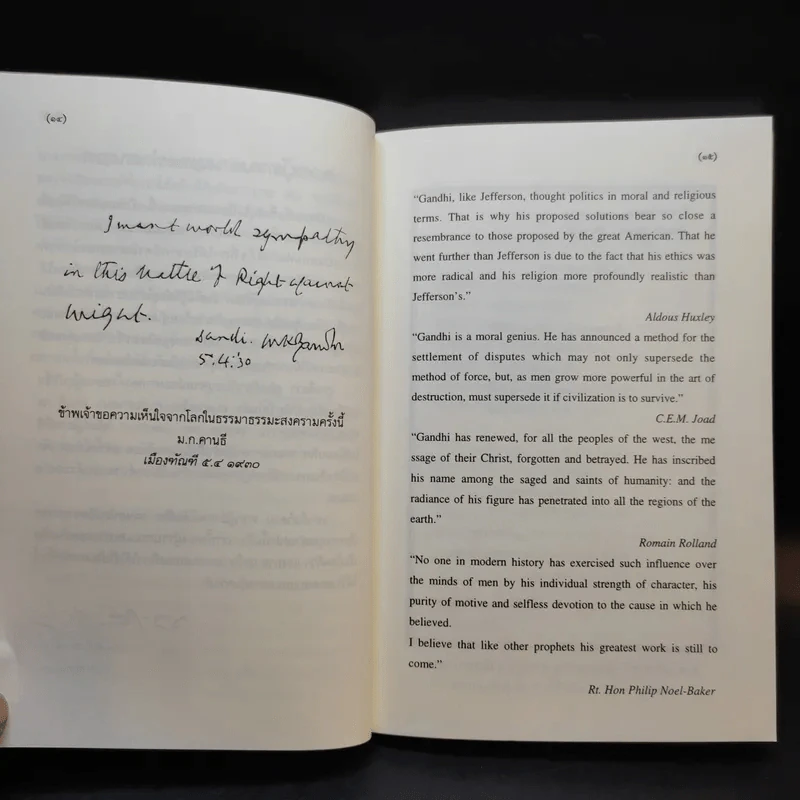 (๑๔)
I want world sympathy
in this battle of Right against
might.
Dandi. MKGandhi
5.4.'30
ข้าพเจ้าขอความเห็นใจจากโลกในธรรมาธรรมะสงครามครั้งนี้
ม.ก.คานธี
เมืองทัณฑี ๕.๔ ๑๙๓๐
(๑๕)
“Gandhi, like Jefferson, thought politics in moral and religious
terms. That is why his proposed solutions bear so close a
resembrance to those proposed by the great American. That he
went further than Jefferson is due to the fact that his ethics was
more radical and his religion more profoundly realistic than
Jefferson’s.”
Aldous Huxley
“Gandhi is a moral genius. He has announced a method for the
settlement of disputes which may not only supersede the
method of force, but, as men grow more powerful in the art of
destruction, must supersede it if civilization is to survive.”
C.E.M. Joad
“Gandhi has renewed, for all the peoples of the west, the me
ssage of their Christ, forgotten and betrayed. He has inscribed
his name among the saged and saints of humanity: and the
radiance of his figure has penetrated into all the regions of the
earth.”
Romain Rolland
“No one in modern history has exercised such influence over
the minds of men by his individual strength of character, his
purity of motive and selfless devotion to the cause in which he
believed.
I believe that like other prophets his greatest work is still to
come.”
Rt. Hon Philip Noel-Baker